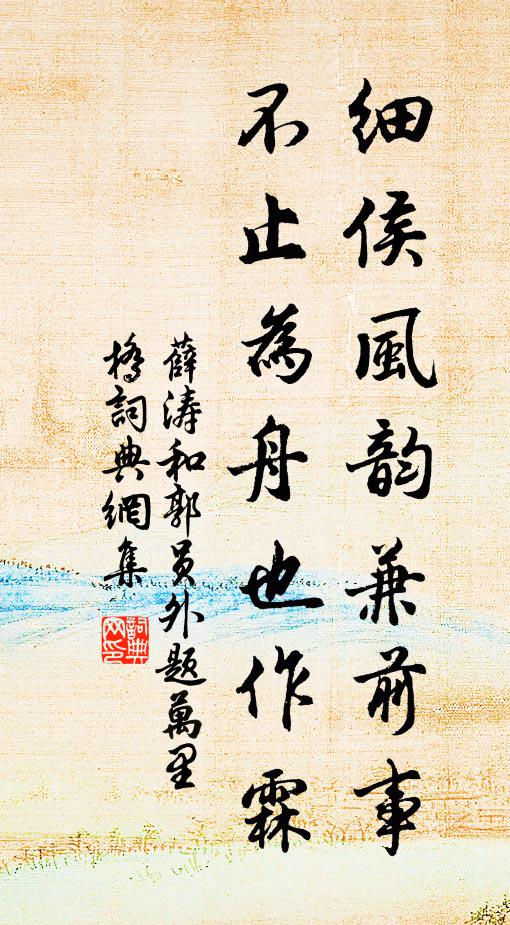 細侯風韵兼前事
不止為舟也作霖
薛濤和郭員外題萬里
橋詞典網集
詞典网印